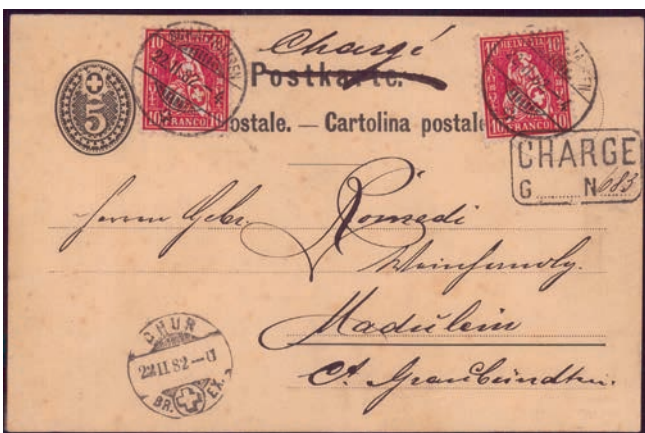 Chargé
Postkarte.
ostale. — Cartolina postale
5
10 10
FRANCO
10 10
10 HELVETIA 10
FRANCO
10 10
22 II 82
CHARGE
G N 683
Herrn Gebr. Romedi
Weinhandlg.
Madulein
Ct. Graubündten.
CHUR
22 II 82
BR. EX.